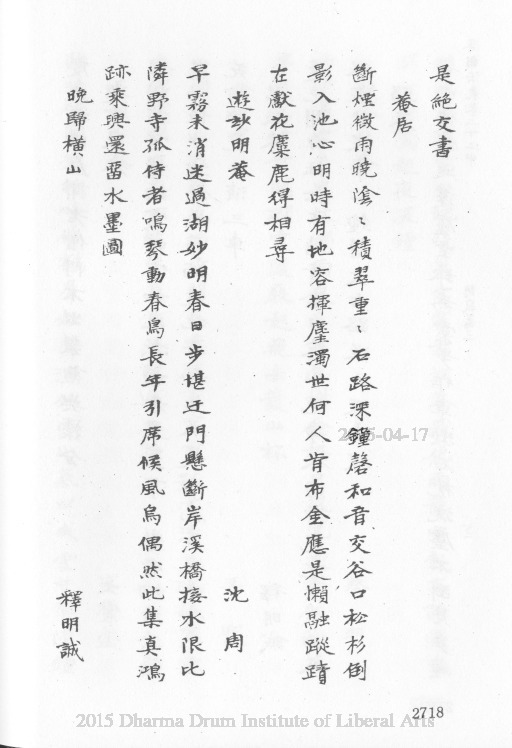 是絶交書
菴居
斷煙微雨曉陰〻積翠重〻石路深鐘磬和音交谷口松杉倒
影入池心明時有地容揮麈濁世何人肯布金應是懶融蹤蹟
在獻花麋鹿得相尋
遊妙明菴
沈周
早霧未消迷過湖妙明春日步堪迂門懸斷岸溪橋接水限比
隣野寺孤侍者鳴琴動春鳥長年引席候風烏偶然此集真鴻
跡乘興還留水墨圖
晚歸橫山
釋明誠
2015-04-17
2718
2015 Dharma Drum Institute of Liberal Arts